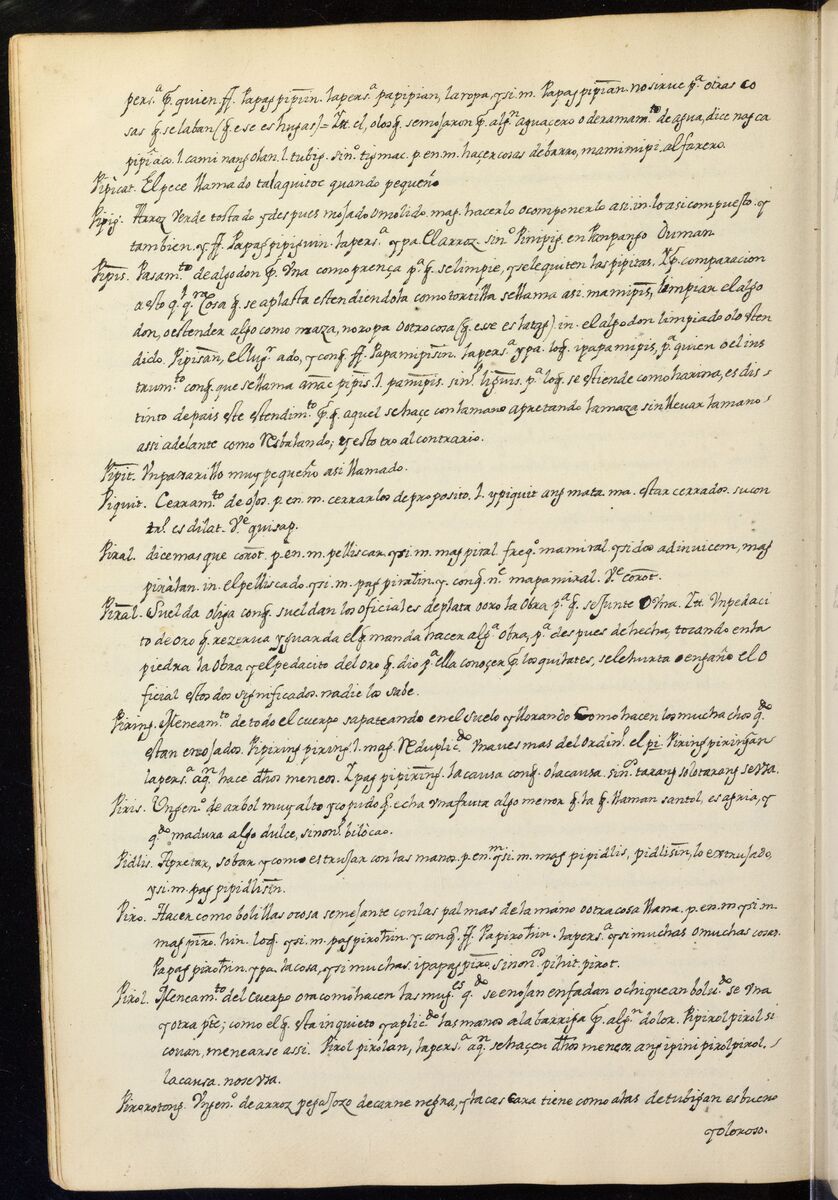 pers.ª q̃. quien. ff. Papagpipiin. lapers.ª papipian, la ropa, y si. m. Papagpipian. no sirue p.ª otras co
sas q̃. se laban (q̃. ese es hugas) = It. el, o los q̃. se mojaron q̃. alg.n aguaçero o deramam.to de agua, dice nagca
pipiaco. l. cami nangolan. l. tubig. sin.º tigmac. p. en. m. haçer cosas de barro, mamimipi. alfarero.
Pipicat. El pece llamado talaquitoc quando pequeño
Pipig. Arroz verde tostado y despues mojado o molido. mag. hacerlo o componerlo asi. in. lo asi compuesto. y
tambien. y. ff. Papagpipiguin. la pers.ª ypa. El arroz. sin.º Pinipig. en Panpango Duman.
Pipis. Pasam.to de algodon q̃. vna como prença p.ª q̃. se limpie, y se le quiten las pipitas. Y q̃. comparacion
a esto q.l q.ra cosa q̃. se aplasta estendiendola como tortilla se llama asi. mamipis, limpiar el algo
don, o estender algo como maza, no ropa o otra cosa (q̃. ese es latag) in. el algodon limpiado o lo esten
dido. Pipisan, el lug.r ado, y conq̃. ff. Papamipisin. la pers.ª ypa. loq̃. ipapamipis, p.ª quien o el ins
trum.to conq̃. que se llama anac pipis. l. pamipis. sin.º liguis. p.ª loq̃. se estiende como harina, es dis
tinto de pais este estendim.to q̃.q̃. aquel se haçe con la mano apretando la maza sin lleuar la mano
assi adelante como resbalando; y estotro al contrario.
Pipit. Vn paxarillo muy pequeño asi llamado.
Piquit. Cerram.to de ojos. p. en. m. cerrarlos de proposito. l. ypiquit ang mata. ma. estar cerrados. su con
tr.º es dilat. V.e quisap.
Piral. dicemas que corot. p. en. m. pelliscar, y si. m. magpiral. freq.º mamiral. y si dos adinuicem, mag
piralan. in. el pelliscado. y si. m. pagpiralin. y. conq̃. n.e mapamiral. V.e corot.
Piral. Suelda o liga conq̃. sueldan los oficiales de plata o oro la obra p.ª q̃. se junte o vna. It. Vn pedaci
to de oro q̃. rezerua y guarda el q̃. manda hacer alg.ª obra, p.ª despues de hecha, tocando en la
piedra la obra y el pedacito del oro q̃. dio p.ª ella conoçer q̃. los quilates, se le hurta o engaño el o
ficial estos dos significados. nadie los sabe.
Piring. Meneam.to de todo el cuerpo sapateando en el suelo y llorando como hacen los muchachos q.do
estan enojados. Pipiring piring. l. mag. reduplic.do vna ves mas del ordin.º el pi. Piring piringan
la pers.ª aq.n hace dhos meneos. Ipagpipiring. la causa conq̃. o la causa. sin.º tarang solotarang se vsa.
Piris. Vn gen.º de arbol muy alto y copudo q̃. echa vna fruta algo menor q̃. la q̃. llaman santol, es agria, y
q.do madura algo dulce, sinon.º bilòcao.
Pidlis. Apretar, sobar y como estrujar con las manos. p. en. m y si. m. magpipidlis, pidlisin, lo extrujado,
y si. m. pagpipidlisin.
Piro. Hacer como bolillas o cosa semejante con las palmas de la mano o otra cosa llana. p. en. m y si. m.
magpiro. hin. loq̃. y si. m. pagpirohin. y. conq̃. ff. Papirohin. la pers.ª y si muchas o muchas cosas.
Papagpirohin. ypa. la cosa, y si muchas. ipapagpiro. sinon.º pihit. pirot.
Pirol. Meneam.to del cuerpo ora como hacen las mug.es q.do se enojan enfadan o chiquean bolu.do se vna
y otra p.te; como el q̃. esta inquieto y aplic.do las manos a la barriga q̃. alg.n dolor. Pipirolpirol si
couan, menearse assi. Pirol pirolan, la pers.ª aq.n se haçen dhos meneos. ang ipinipirolpirol.
la causa. no se vsa.
Pirorotong. Vn gen.º de arroz pegajozo de carne negra, y la cascara tiene como alas de tubigan es bueno
y oloroso.